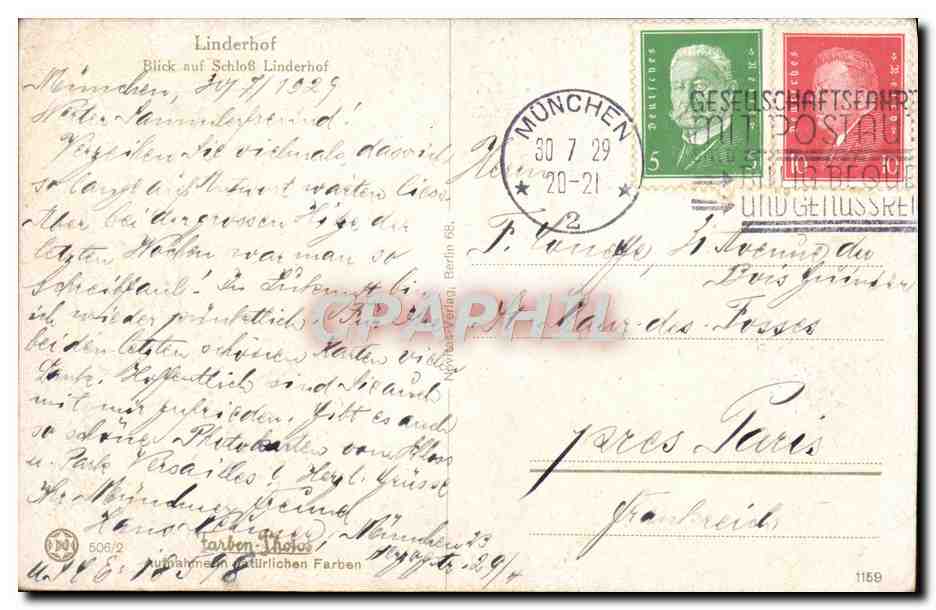 Linderhof
Blick auf Schloß Linderhof
München, 30/7/1929
Werter Sammlerfreund!
Verzeihen Sie vielmals dass ich
so lange auf Antwort warten liess.
Aber bei der grossen Hitze der
letzten Wochen war man so
schreibfaul! In Zukunft bin
ich wieder pünktlich. Für die
beiden letzten schönen Karten vielen
Dank. Hoffentlich sind Sie auch
mit mir zufrieden. Gibt es auch
so schöne Photokarten vom Schloss
u. Park Versailles? Herzl. Grüsse
Ihr Münchner Freund
Hans München 23
29/4
506/2
Farben-Photos
Aufnahme in natürlichen Farben
Novitas-Verlag, Berlin 68.
MÜNCHEN
30 7 29
20-21
2
Deutsches Reich
5 5
Deutsches Reich
10 10
GESELLSCHAFTSFAHRT
MIT POSTAU
BILLIG BEQUE
UND GENUSSREI
Herrn
F. 31 Avenue du
Bois
St Maur-des-Fosses
près Paris
Frankreich
1159
GRAPHIL